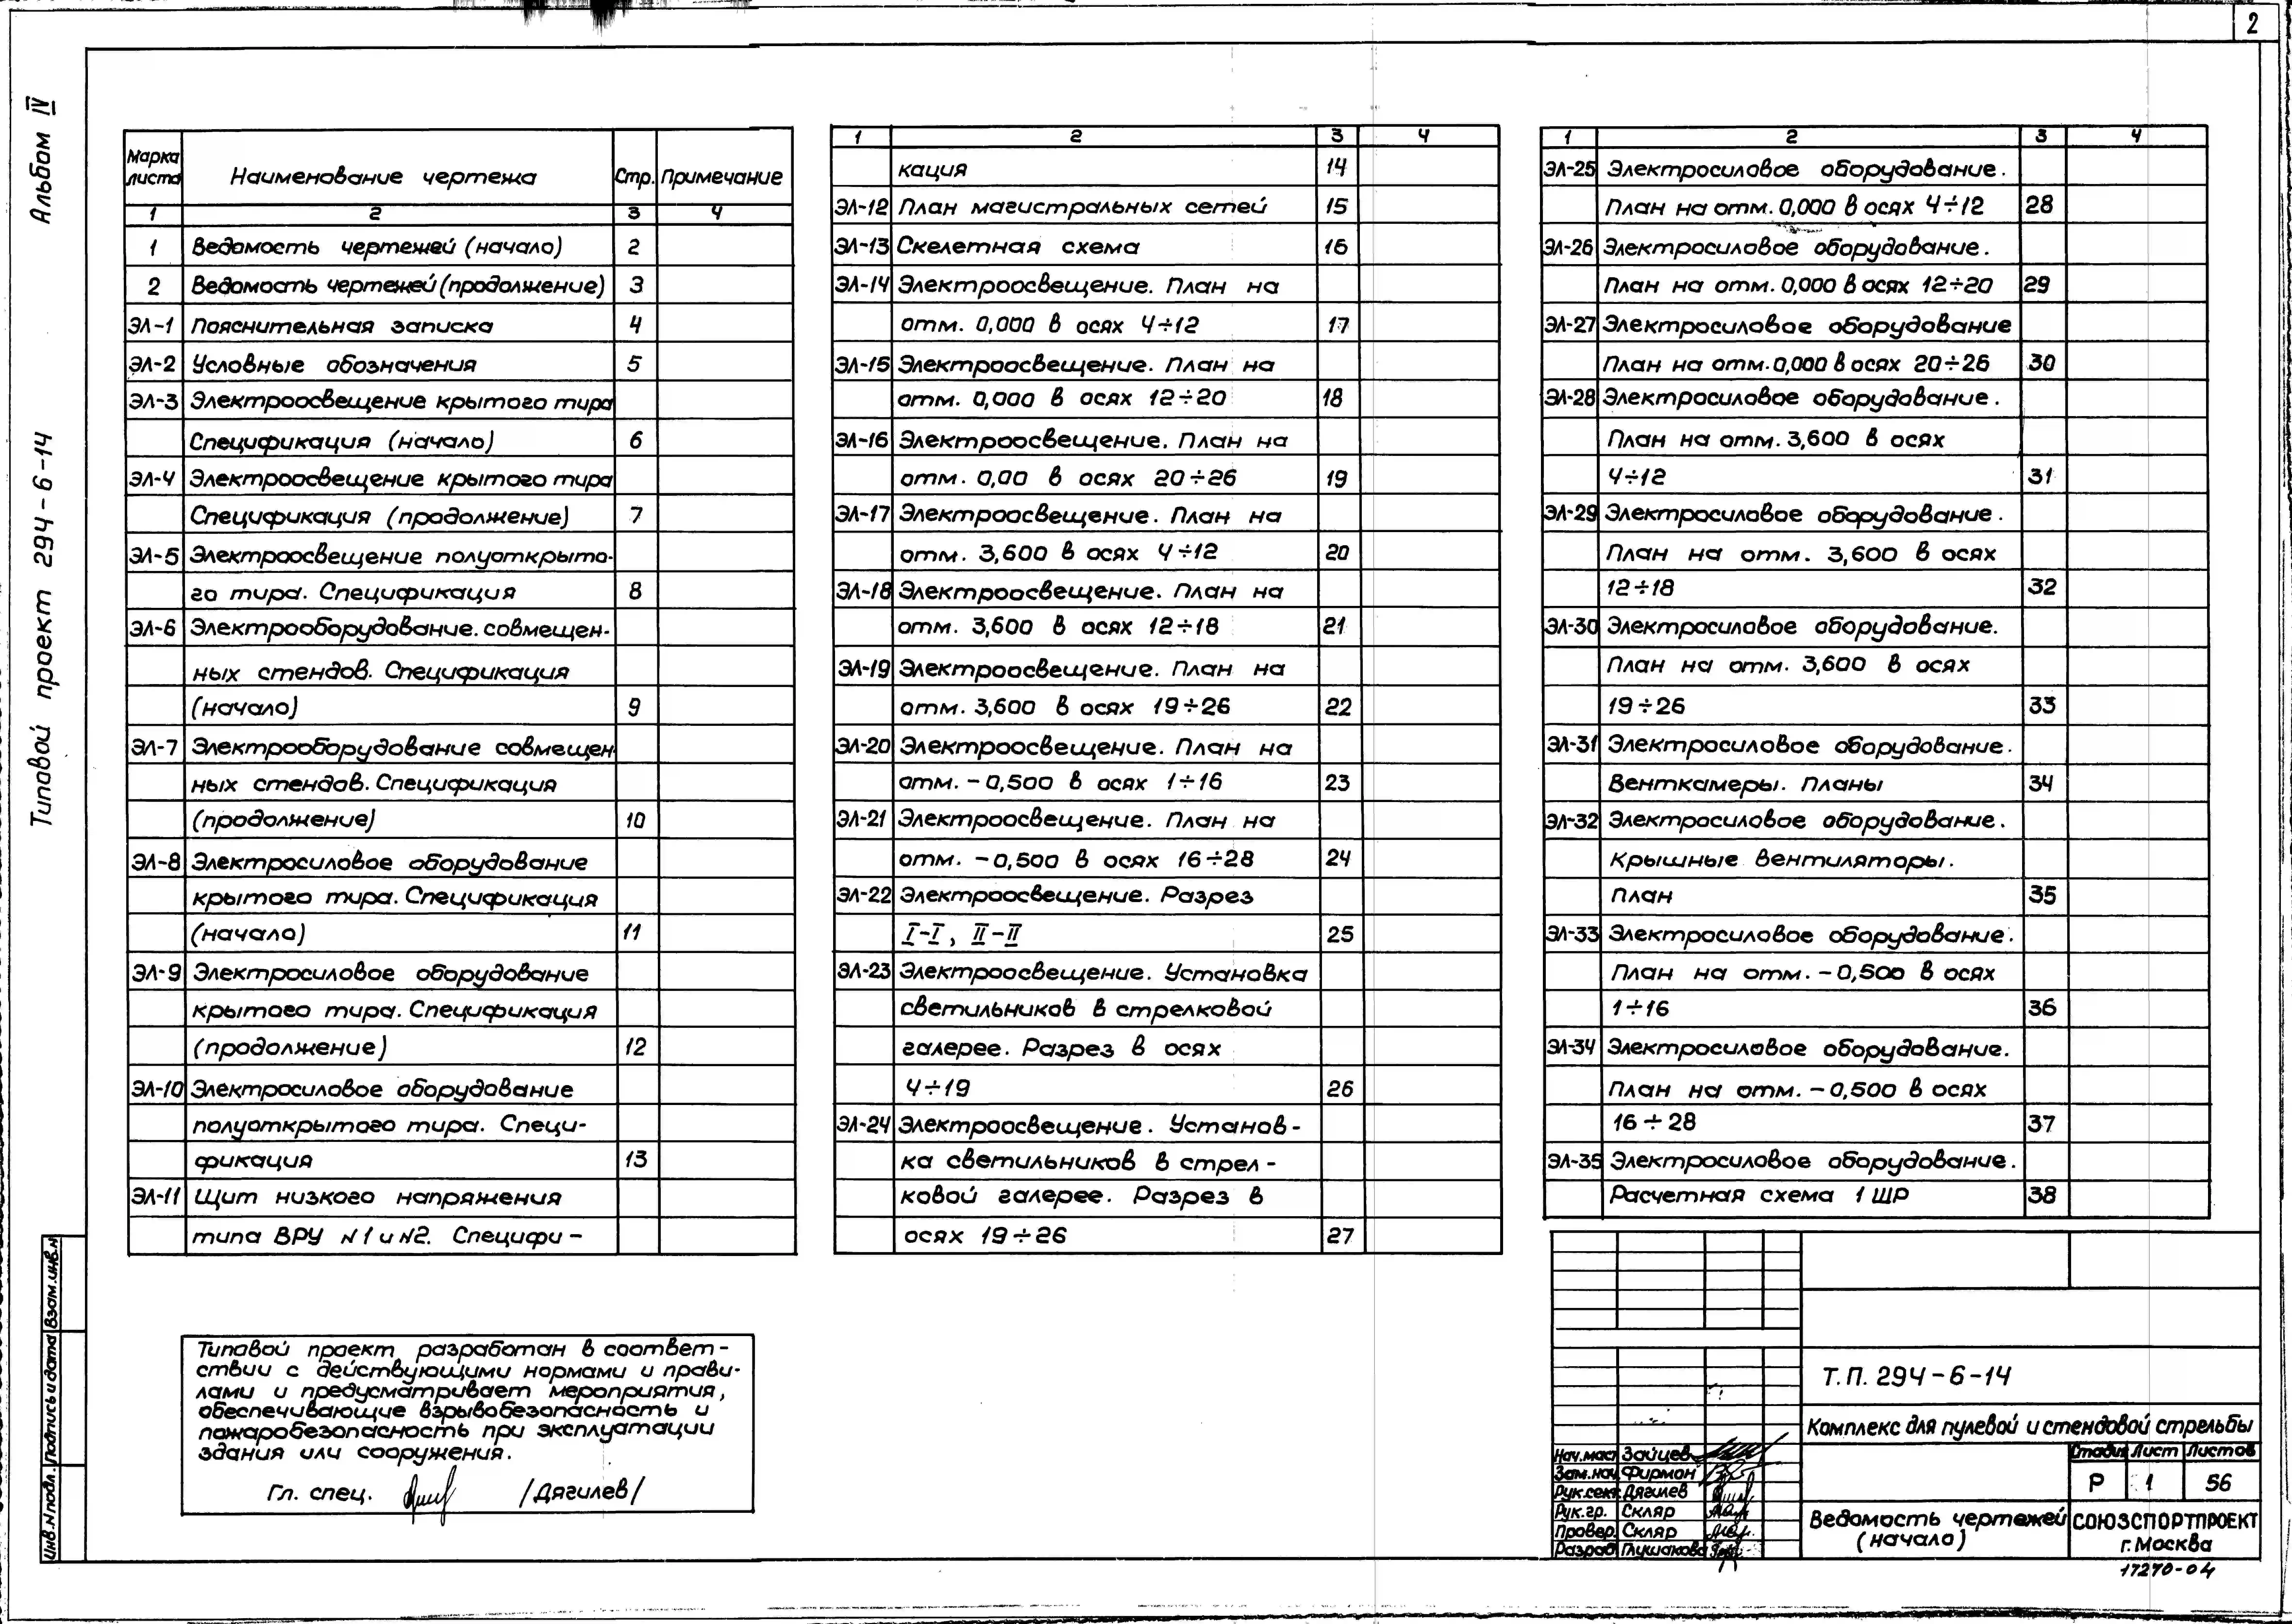 2
Альбом IV
Типовой проект 294-6-14
Марка листа
Наименование чертежа
Стр.
Примечание
1 2 3 4
1 Ведомость чертежей (начало) 2
2 Ведомость чертежей (продолжение) 3
ЭЛ-1 Пояснительная записка 4
ЭЛ-2 Условные обозначения 5
ЭЛ-3 Электроосвещение крытого тира
Спецификация (начало) 6
ЭЛ-4 Электроосвещение крытого тира
Спецификация (продолжение) 7
ЭЛ-5 Электроосвещение полуоткрыто-
го тира. Спецификация 8
ЭЛ-6 Электрооборудование. совмещен-
ных стендов. Спецификация
(начало) 9
ЭЛ-7 Электрооборудование совмещен
ных стендов. Спецификация
(продолжение) 10
ЭЛ-8 Электросиловое оборудование
крытого тира. Спецификация
(начало) 11
ЭЛ-9 Электросиловое оборудование
крытого тира. Спецификация
(продолжение) 12
ЭЛ-10 Электросиловое оборудование
полуоткрытого тира. Специ-
фикация 13
ЭЛ-11 Щит низкого напряжения
типа ВРУ N1 и N2. Специфи-
1 2 3 4
кация 14
ЭЛ-12 План магистральных сетей 15
ЭЛ-13 Скелетная схема 16
ЭЛ-14 Электроосвещение. План на
отм. 0,000 в осях 4÷12 17
ЭЛ-15 Электроосвещение. План на
отм. 0,000 в осях 12÷20 18
ЭЛ-16 Электроосвещение. План на
отм. 0,00 в осях 20÷26 19
ЭЛ-17 Электроосвещение. План на
отм. 3,600 в осях 4÷12 20
ЭЛ-18 Электроосвещение. План на
отм. 3,600 в осях 12÷18 21
ЭЛ-19 Электроосвещение. План на
отм. 3,600 в осях 19÷26 22
ЭЛ-20 Электроосвещение. План на
отм. -0,500 в осях 1÷16 23
ЭЛ-21 Электроосвещение. План на
отм. -0,500 в осях 16÷28 24
ЭЛ-22 Электроосвещение. Разрез
I-I, II-II 25
ЭЛ-23 Электроосвещение. Установка
светильников в стрелковой
галерее. Разрез в осях
4÷19 26
ЭЛ-24 Электроосвещение. Установ-
ка светильников в стрел-
ковой галерее. Разрез в
осях 19÷26 27
1 2 3 4
ЭЛ-25 Электросиловое оборудование.
План на отм. 0,000 в осях 4÷12 28
ЭЛ-26 Электросиловое оборудование.
План на отм. 0,000 в осях 12÷20 29
ЭЛ-27 Электросиловое оборудование
План на отм. 0,000 в осях 20÷26 30
ЭЛ-28 Электросиловое оборудование.
План на отм. 3,600 в осях
4÷12 31
ЭЛ-29 Электросиловое оборудование.
План на отм. 3,600 в осях
12÷18 32
ЭЛ-30 Электросиловое оборудование.
План на отм. 3,600 в осях
19÷26 33
ЭЛ-31 Электросиловое оборудование.
Венткамеры. Планы 34
ЭЛ-32 Электросиловое оборудование.
Крышные вентиляторы.
План 35
ЭЛ-33 Электросиловое оборудование.
План на отм. -0,500 в осях
1÷16 36
ЭЛ-34 Электросиловое оборудование.
План на отм. -0,500 в осях
16÷28 37
ЭЛ-35 Электросиловое оборудование.
Расчетная схема 1 ШР 38
Типовой проект разработан в соответ-
ствии с действующими нормами и прави-
лами и предусматривает мероприятия,
обеспечивающие взрывобезопасность и
пожаробезопасность при эксплуатации
здания или сооружения.
Гл. спец. /Дягилев/
Инв.N подл. Подпись и дата Взам.инв.N
Т.П. 294-6-14
Комплекс для пулевой и стендовой стрельбы
Нач.маст Зайцев
Зам.нач Фирман
Рук.сект Дягилев
Рук.гр. Скляр
Провер. Скляр
Разраб Глушакова
Стадия Лист Листов
Р 1 56
Ведомость чертежей
(начало)
СОЮЗСПОРТПРОЕКТ
г. Москва
17270-04